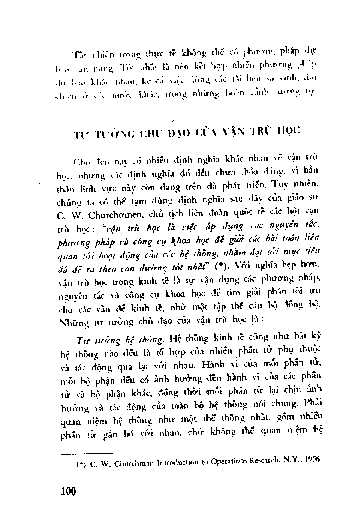 Tất nhiên trong thực tế không thể có phương pháp dự
báo vạn năng. Tốt nhất là nên kết hợp nhiều phương pháp
dự báo khác nhau, kể cả việc dùng các tài liệu so sánh, đối
chiếu ở các nước khác, trong những hoàn cảnh tương tự.
TƯ TƯỞNG CHỦ ĐẠO CỦA VẬN TRÙ HỌC
Cho đến nay có nhiều định nghĩa khác nhau về vận trù
học, nhưng các định nghĩa đó đều chưa thỏa đáng, vì bản
thân lĩnh vực này còn đang trên đà phát triển. Tuy nhiên,
chúng ta có thể tạm dùng định nghĩa sau đây của giáo sư
C. W. Churchomen, chủ tịch liên đoàn quốc tế các hội vận
trù học: "vận trù học là việc áp dụng các nguyên tắc,
phương pháp và công cụ khoa học để giải các bài toán liên
quan tới hoạt động của các hệ thống, nhằm đạt tới mục tiêu
đã đề ra theo con đường tốt nhất" (*). Với nghĩa hẹp hơn,
vận trù học trong kinh tế là sự vận dụng các phương pháp,
nguyên tắc và công cụ khoa học để tìm giải pháp tối ưu
cho các vấn đề kinh tế, nhờ một tập thể cán bộ đồng bộ.
Những tư tưởng chủ đạo của vận trù học là:
Tư tưởng hệ thống. Hệ thống kinh tế cũng như bất kỳ
hệ thống nào đều là tổ hợp của nhiều phần tử phụ thuộc
và tác động qua lại với nhau. Hành vi của mỗi phần tử,
mỗi bộ phận đều có ảnh hưởng đến hành vi của các phần
tử và bộ phận khác, đồng thời mỗi phần tử lại chịu ảnh
hưởng và tác động của toàn bộ hệ thống nói chung. Phải
quan niệm hệ thống như một thể thống nhất, gồm nhiều
phần tử gắn bó với nhau, chứ không thể quan niệm hệ
(*) C. W. Churchman Introduction to Operations Research. N.Y., 1956
100